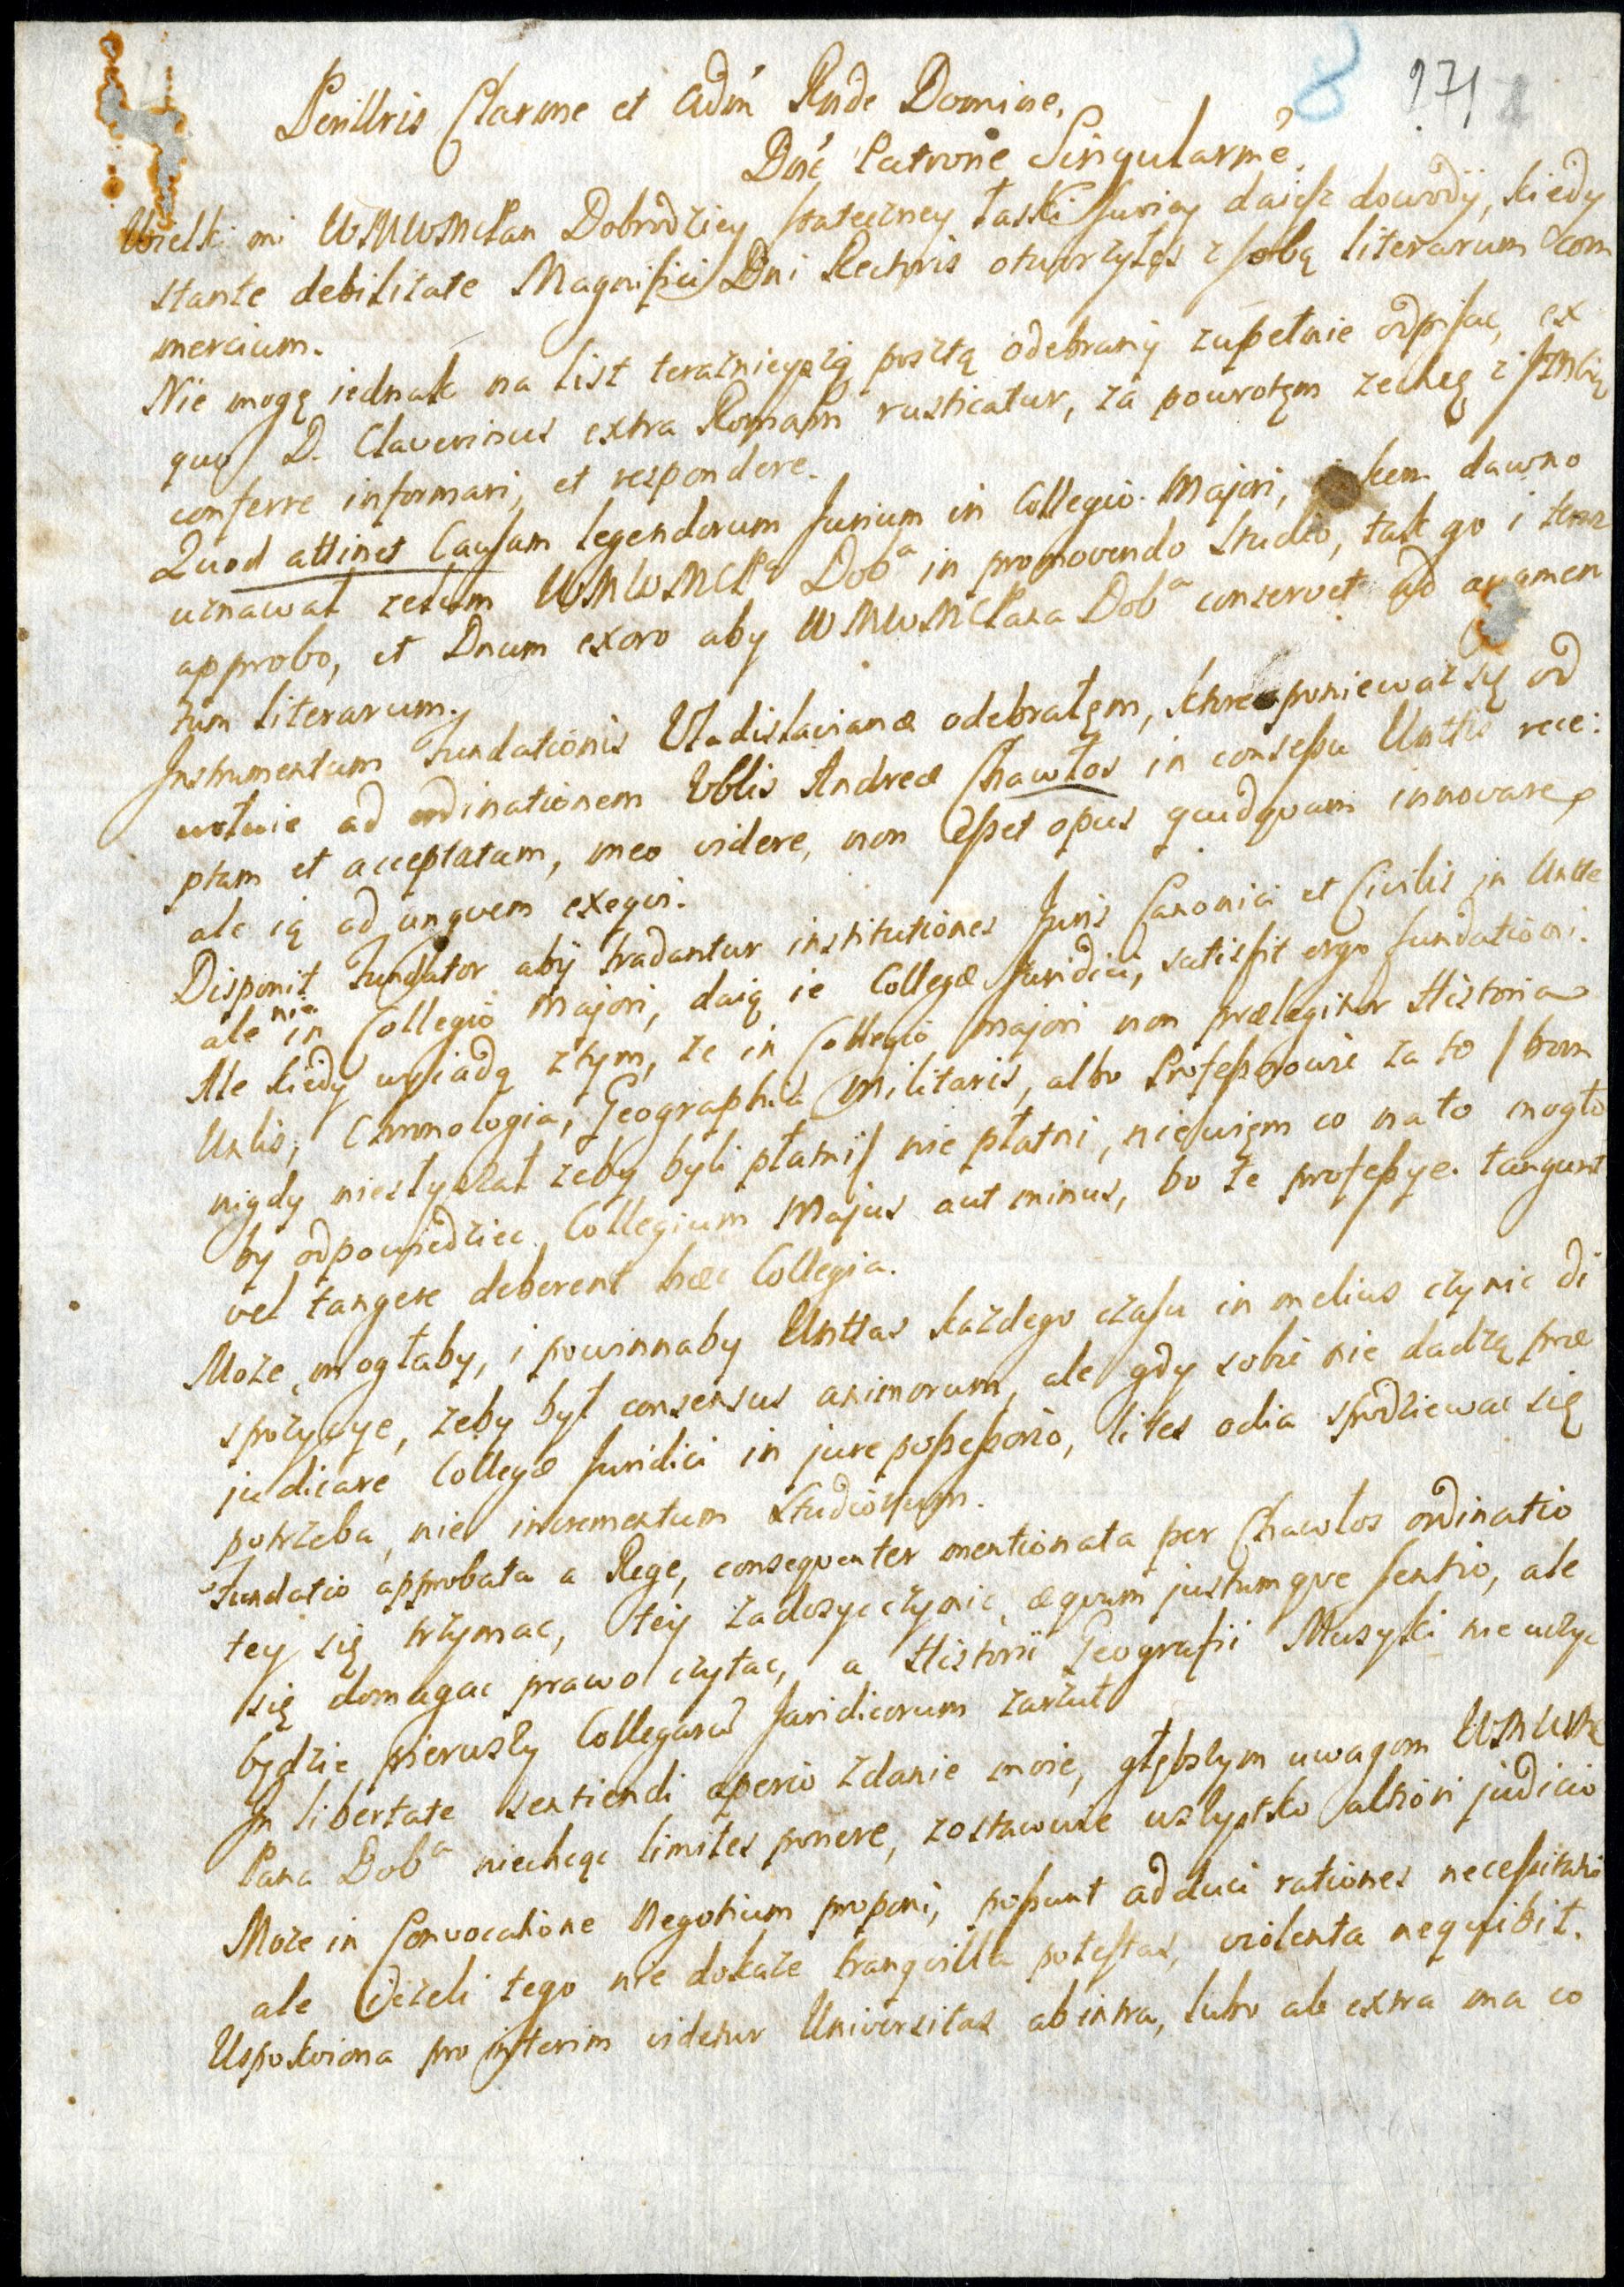 8 271
Perillris Clarme et Adm Rnde Domine,
Dne Patrone Singularme.
Wielki mi WMWMCPan Dobrodziey stateczney łaski swoiey daiesz dowody, kiedy
stante debilitate Magnifici Dni Rectoris otworzyłęs z sobą literarum com
mercium.
Nie mogę iednak na list teraznieyszą posztą odebrany zupełnie odpisac, ex
quo D. Claverinus extra Romam rusticatur, za powrotęm zechcę z
conferre informari, et respondere.
Quod attinet Causam legendorum Jurium in Collegio Majori, dawno
uznawał zelum WMWMCPa Doba in promovendo studio, tak go i teraz
approbo, et Dnum exoro aby WMWMCPana Doba conservet ad augmen
tum literarum.
Instrumentum fundationis Vladislavianæ odebrałęm, ktore poniewaz się od
wołuie ad ordinationem Andreæ Chawłos in consessu Unttis rece:
ptam et acceptatam, meo videre, non esset opus quidquam innovare
ale ią ad unguem exequi.
Disponit fundator aby tradantur institutiones Juris Canonici et Civilis in Untte
ale nie in Collegio Majori, daią ie Collegæ Juridici, satisfit ergo fundationi.
Ale kiedy wyiadą ztym, ze in Collegio majori non prælegitur Historia
Unlis, Chronologia, Geographia Militaris, albo Professorowie za to / bom
nigdy niesłyszał zeby byli płatni / nie płatni, niewięm co na to mogło
by odpowiedziec Collegium Majus aut minus, bo te professye tangunt
vel tangere deberent hæc Collegia.
Moze, mogłaby, i powinnaby Unttas kazdego czasu in melius czynic di
spozycye, zeby był consensus animorum, ale gdy sobie nie dadzą præ
judicare Collegæ Juridici in jure possessorio, lites odia spodziewac się
potrzeba, nie incrementum studiorum.
Fundatio approbata a Rege, consequenter mentionata per Chawłos ordinatio
tey się trzymac, tey zadosyc czynic, æquum justumque sentio, ale
się domagac prawo czytac, a Historii Geografii Musyki nie uczyc
będzie pierwszy Collegarum Juridicorum zarzut
In libertate sentiendi aperio zdanie moie, głębszym uwagom WMWMC
Pana Doba niechcąc limites ponere, zostawuie wszystko altiori judicio
Moze in Convocatione Negotium proponi, possunt adduci rationes
ale jezeli tego nie dokaze tranquilla potestas, violenta nequibit.
Uspokoiona pro interim videtur Universitas ab intra, lubo ab extra ma co